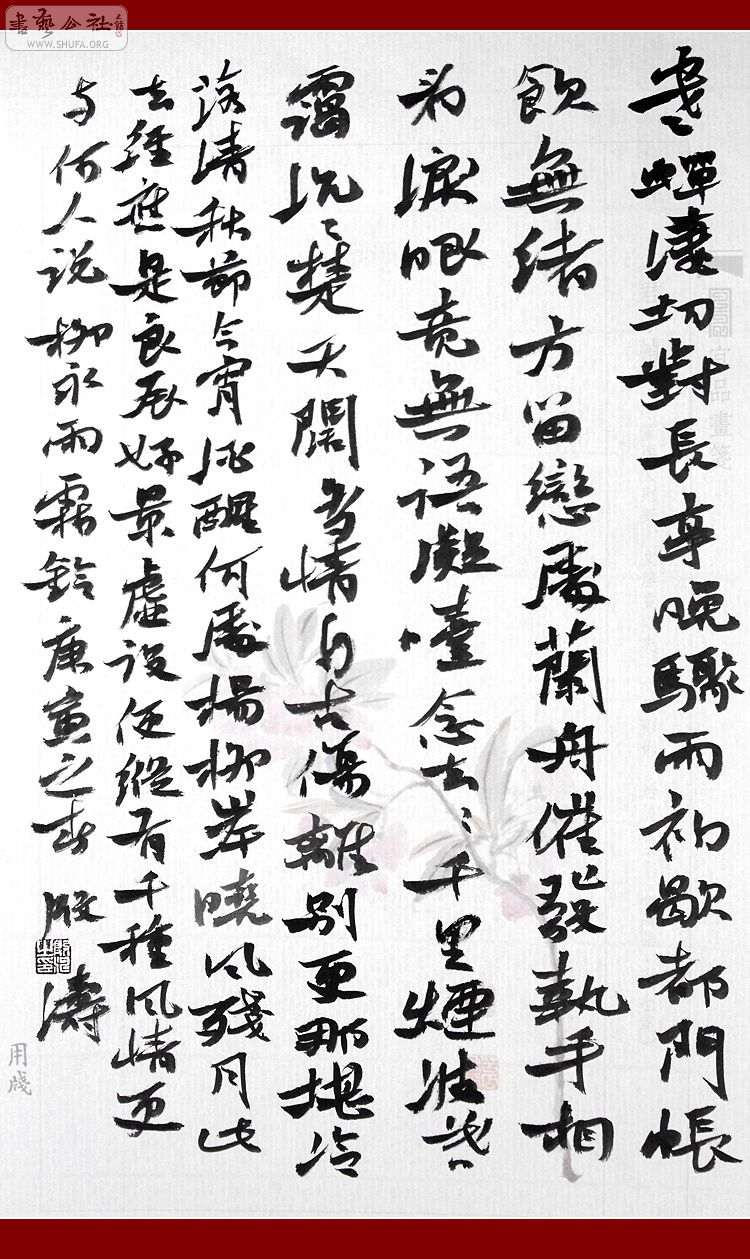 書藝公社
WWW.SHUFA.ORG
寒蟬淒切對長亭晚驟雨初歇都門帳
飲無緒方留戀處蘭舟催發執手相
看淚眼竟無語凝噎念去〻千里煙波暮
靄沉〻楚天闊多情自古傷離別更那堪冷
落清秋節今宵酒醒何處楊柳岸曉風殘月此
去經應是良辰好景虛設便縱有千種風情更
与何人说柳永雨霖鈴庚寅之春 殷濤
品畫箋
用牋